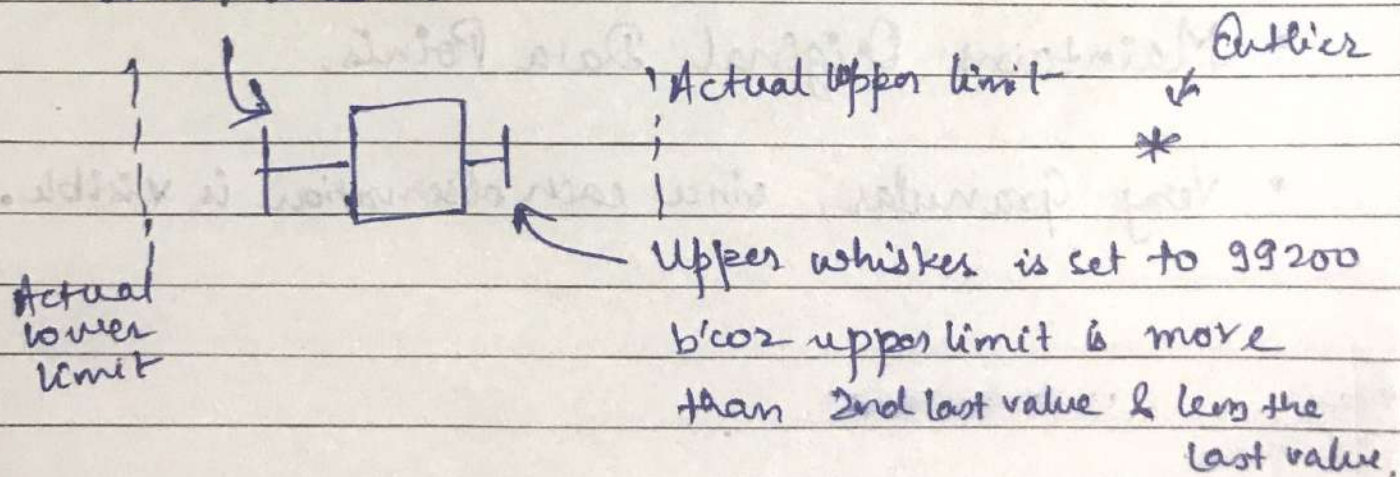 Outlier
Actual Upper limit
*
Actual
lower
limit
Upper whisker is set to 99200
b'coz upper limit is more
than 2nd last value & less the
last value.